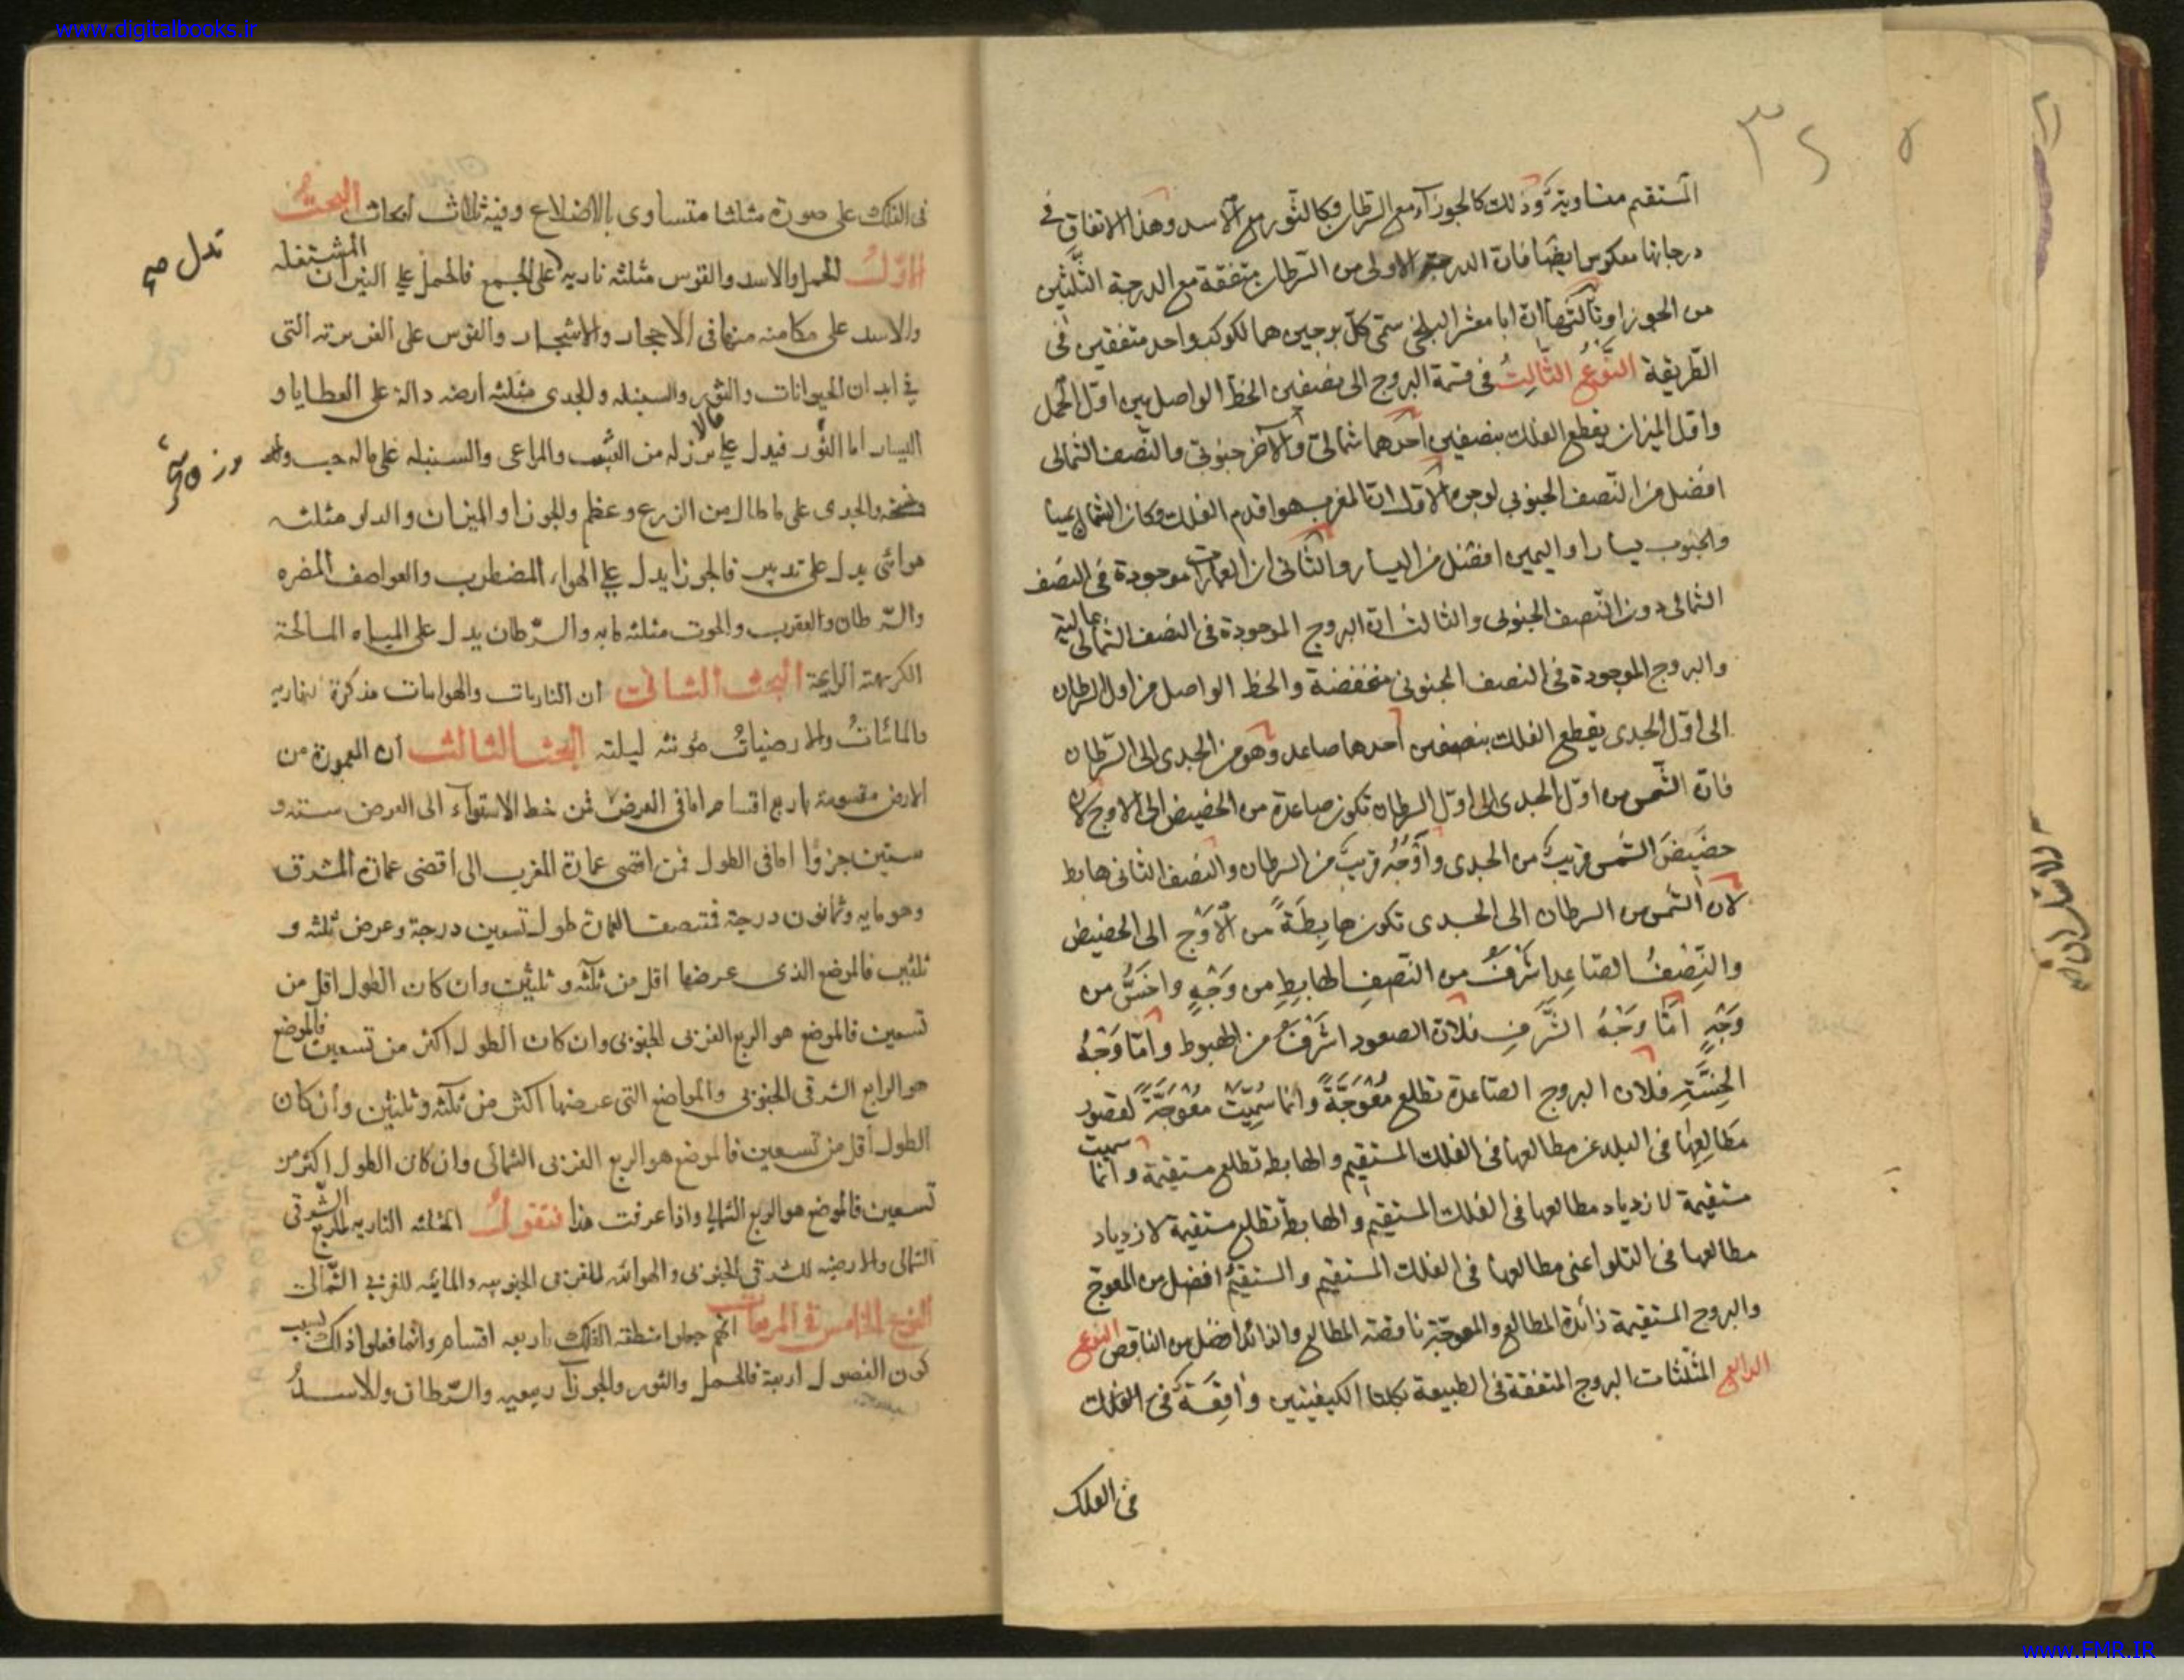 www.digitalbooks.ir
٣٢
٥
المستقيم متساوية وذلك كالجوزآء مع السرطان وكالثور مع الاسد وهذا الاتفاق في
درجاتها معكوس ايضا فان الدرجة الاولى من السرطان متفقة مع الدرجة الثلثين
من الجوزا وثالثها ان ابا معشر البلخى سمى كل برجين هما لكوكب واحد متفقين فى
الطريقة النوع الثالث فى قسمة البروج الى نصفين الخط الواصل بين اول الحمل
واول الميزان يقطع الفلك بنصفين احدهما شمالى والآخر جنوبى والنصف الشمالى
افضل من النصف الجنوبي لوجوه الاول ان المغرب هو اقدم الفلك وكان الشمال يمينا
والجنوب يسارا واليمين افضل من اليسار والثانى ان العمارات موجودة فى النصف
الشمالى دون النصف الجنوبى والثالث ان البروج الموجودة فى النصف الشمالى عالية
والبروج الموجودة فى النصف الجنوبى منخفضة والخط الواصل من اول السرطان
الى اول الجدى يقطع الفلك بنصفين احدهما صاعد وهو من الجدى الى السرطان
فان الشمس من اول الجدى الى اول السرطان تكون صاعدة من الحضيض الى الاوج لان
حضيض الشمس قريب من الجدى واوجه قريب من السرطان والنصف الثانى هابط
لان الشمس من السرطان الى الجدى تكون هابطة من الاوج الى الحضيض
والنصف الصاعد اشرف من النصف الهابط من وجه واخس من
وجه اما وجه الشرف فلان الصعود اشرف من الهبوط واما وجه
الخسة فلان البروج الصاعدة تطلع معوجة وانما سميت معوجة لقصور
مطالعها فى البلد عن مطالعها فى الفلك المستقيم والهابطة تطلع مستقيمة وانما سميت
مستقيمة لازدياد مطالعها فى الفلك المستقيم والهابطة تطلع مستقيمة لازدياد
مطالعها فى التلو اعنى مطالعها فى الفلك المستقيم والمستقيم افضل من المعوج
والبروج المستقيمة زائدة المطالع والمعوجة ناقصة المطالع والزائد افضل من الناقص النوع
الرابع المثلثات البروج المتفقة فى الطبيعة بكلتا الكيفيتين واقعة فى الفلك
فى الفلك
فى الفلك على صورة مثلثا متساوى بالاضلاع وفيه ثلاث ابحاث البحث
الاول الحمل والاسد والقوس مثلثه ناريه على الجمع فالحمل على النيران المشتعله
والاسد على مكامنه منها فى الاحجار والاشجار والقوس على الغريزته التى
في ابدان الحيوانات والثور والسنبله والجدى مثلثه ارضه دالة على العطايا و
اليسار اما الثور فيدل على من العشب والمراعى والسنبله على ماله حب
والجدى على ما طال من الزرع وعظم والجوزا والميزان والدلو مثلثه
هوائى يدل على تدبير فالجوزا يدل على الهواء المضطرب والعواصف المضره
والسرطان والعقرب والحوت مثلثه مايه والسرطان يدل على المياه المالحة
الكريهة الرايحة البحث الثانى ان الناريات والهوايات مذكرة نهاريه
والمائيات والارضيات مؤنثه ليلته البحث الثالث ان المعمورة من
الارض مقسومة باربع اقسام اما فى العرض فمن خط الاستواء الى العرض ستة و
ستين جزوا اما فى الطول فمن اقصى عمارة المغرب الى اقصى عمارة المشرق
وهو مايه وثمانون درجة فمنتصف العمارة طول تسعين درجة وعرض ثلثه و
ثلثين فالموضع الذى عرضها اقل من ثلثه وثلثين وان كان الطول اقل من
تسعين فالموضع هو الربع الغربى الجنوبى وان كان الطول اكثر من تسعين فالموضع
هو الرابع الشرقى الجنوبى والمواضع التى عرضها اكثر من ثلثه وثلثين وان كان
الطول اقل من تسعين فالموضع هو الربع الغربى الشمالى وان كان الطول اكثر من
تسعين فالموضع هو الربع الشمالي الشرقى واذا عرفت هذا فنقول المثلثه الناريه للربع
الشمالى والارضيه للشرقى الجنوبى والهوائه للغربى الجنوبيه والمائيه للغربي الشمالى
النوع الخامس فى المربعات انهم جعلوا منطقه الفلك باربعه اقسام وانما فعلوا ذلك لسبب
كون الفصول اربعة فالحمل والثور والجوزآ ربيعيه والسرطان والاسد
www.FMR.IR